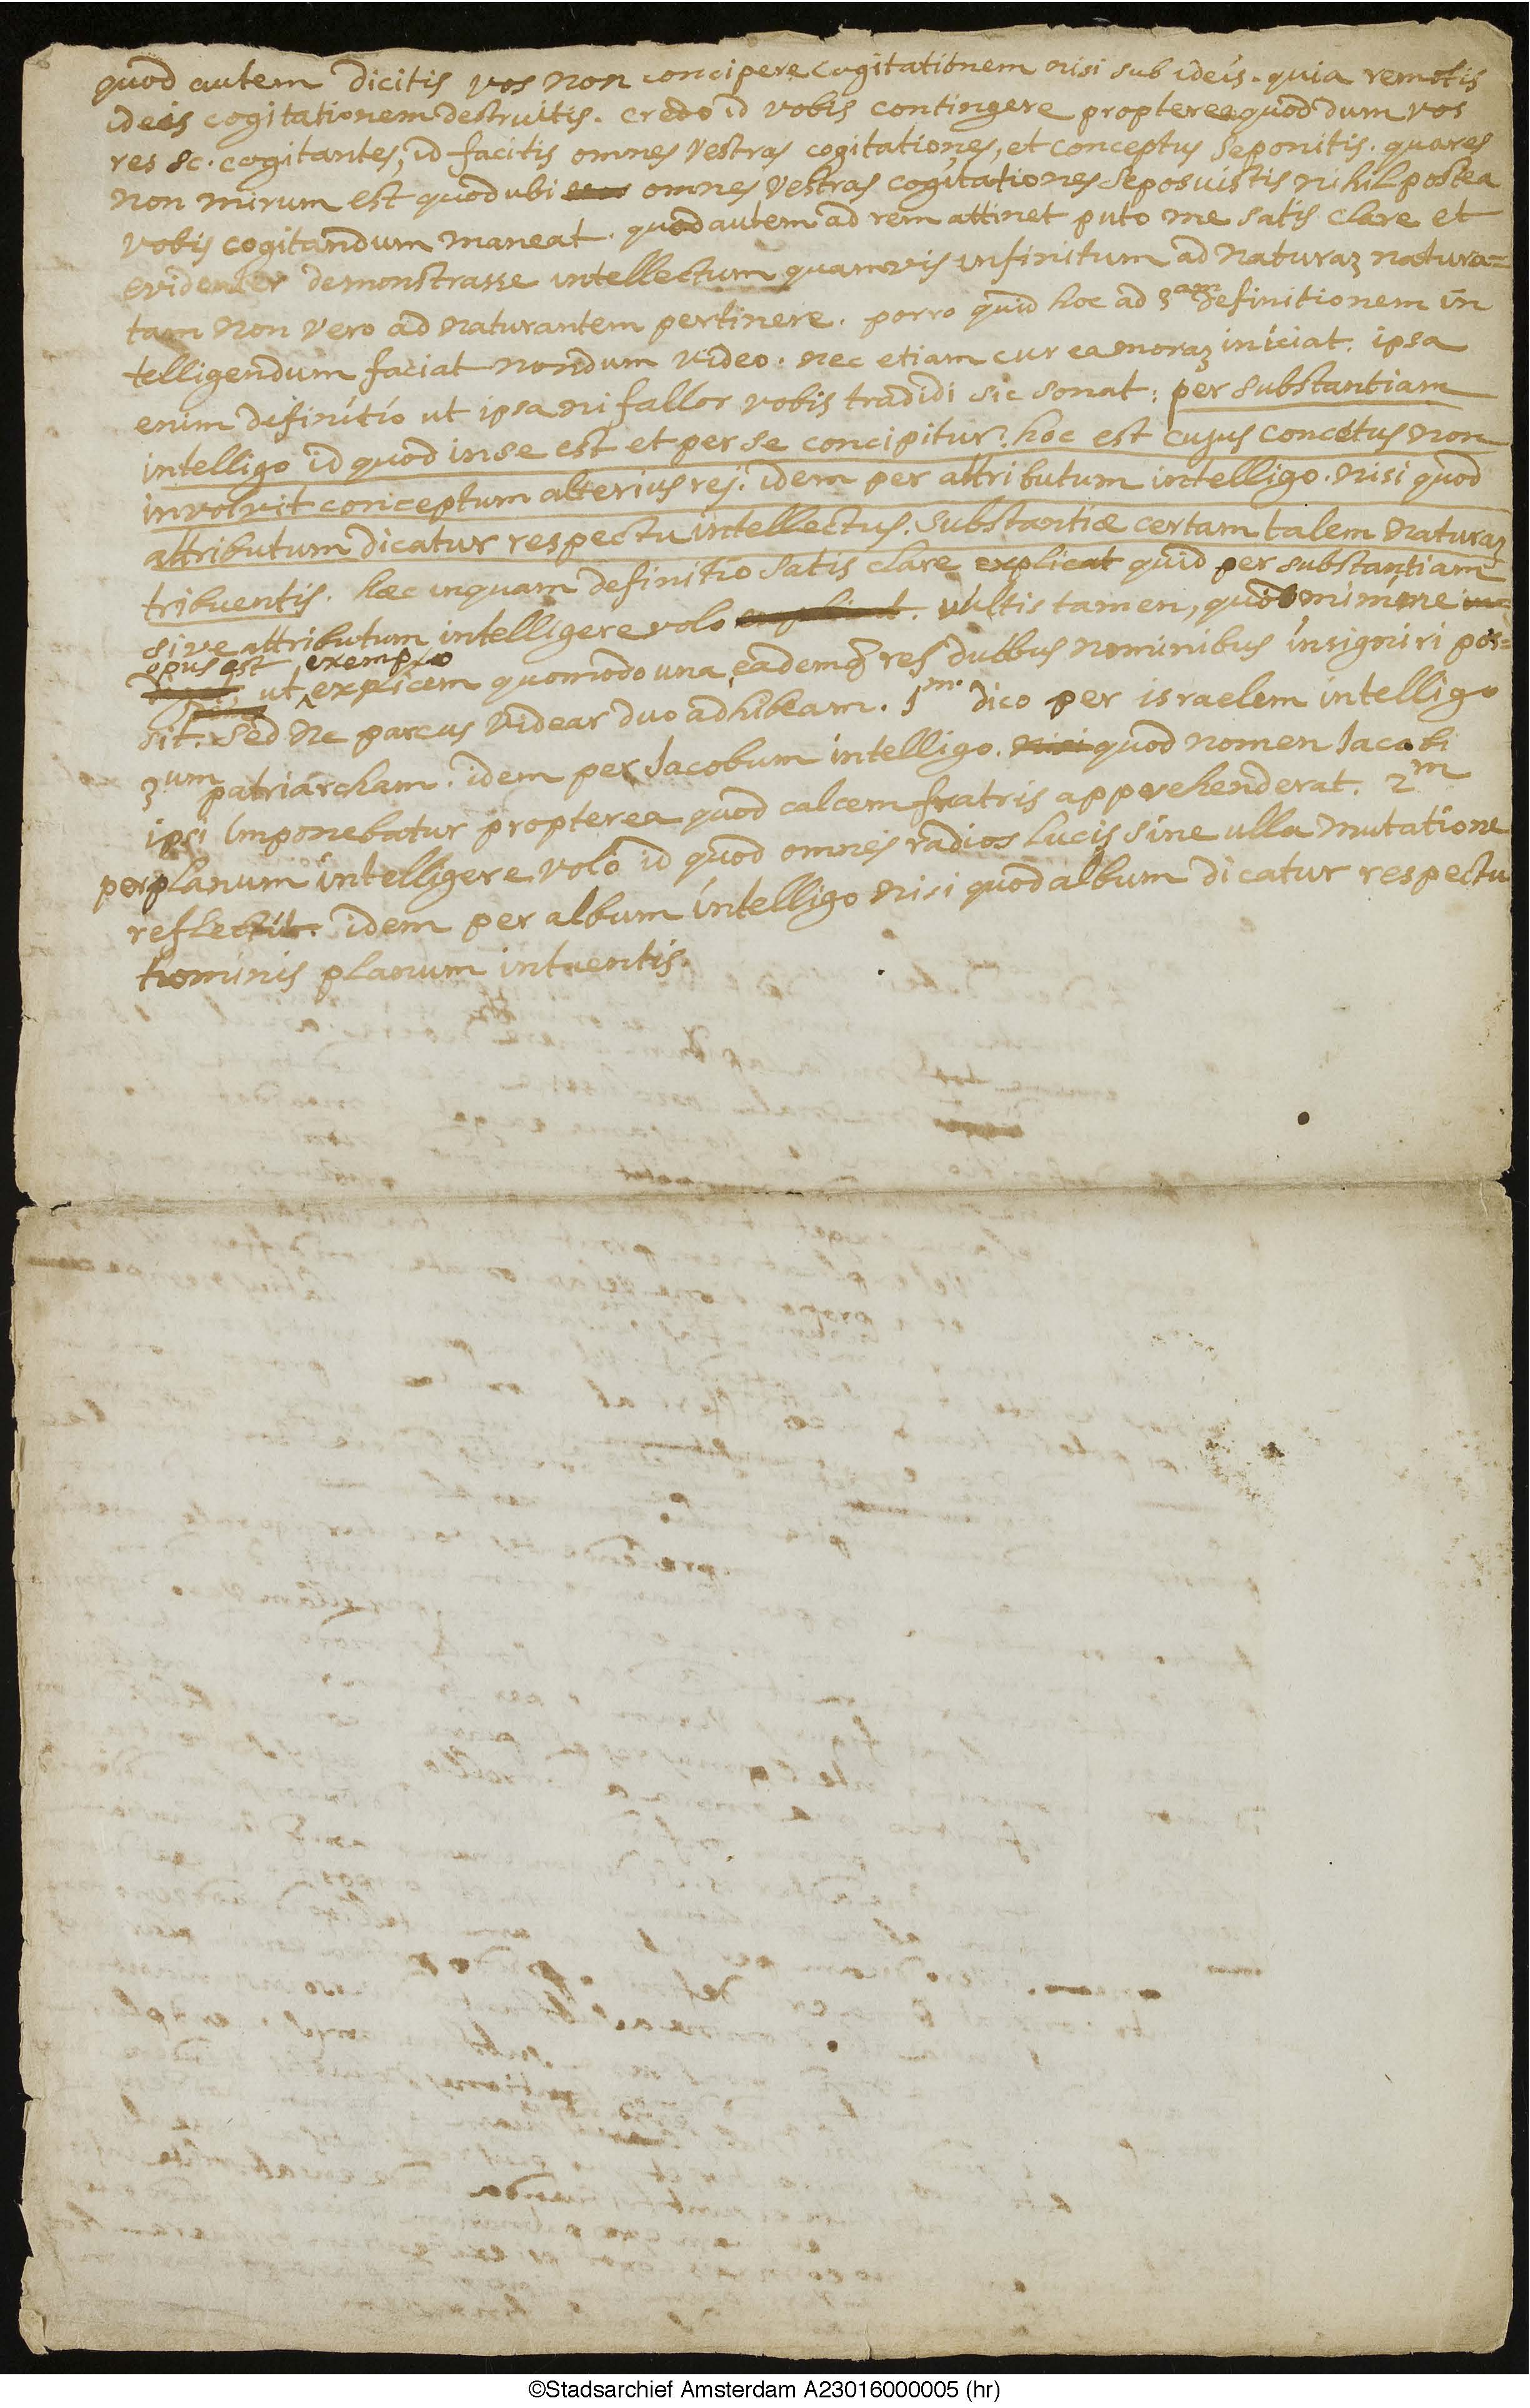 quod autem dicitis vos non concipere cogitationem nisi sub ideis. quia remotis
ideis cogitationem destruitis. credo id vobis contingere propterea quod dum vos
res sc. cogitantes, id facitis omnes vestras cogitationes, et conceptus seponitis. quares
non mirum est quod ubi omnes vestras cogitationes seposuistis nihil postea
vobis cogitandum maneat. quod autem ad rem attinet puto me satis clare et
evidenter demonstrasse intellectum quamvis infinitum ad naturaz natura=
tam non vero ad naturantem pertinere. porro quid hoc ad 3am definitionem in
telligendum faciat nondum video. nec etiam cur ea moraz iniciat. ipsa
enim difinitio ut ipsa ni fallor vobis tradidi sic sonat: per substantiam
intelligo id quod in se est et per se concipitur. hoc est cujus concetus non
involvit conceptum alterius rej. idem per attributum intelligo. nisi quod
attributum dicatur respectu intellectus. substantiæ certam talem naturaz
tribuentis. hæc inquam definitio satis clare explicat quid per substantiam
sive attributum intelligere volo explicat. vultis tamen, quod minime
opus est exemplo
ut explicem quomodo una eademq res duobus nominibus insigniri pos=
sit. sed ne parcus videar duo adhibeam. 1m. dico per israelem intelligo
3um patriarcham. idem per Jacobum intelligo. nisi quod nomen Jacobi
ipsi imponebatur propterea quod calcem fratris apprehenderat. 2m
per planum intelligere volo id quod omnes radios lucis sine ulla mutatione
reflectit. idem per album intelligo nisi quod album dicatur respectu
hominis planum intuentis.
©Stadsarchief Amsterdam A23016000005 (hr)